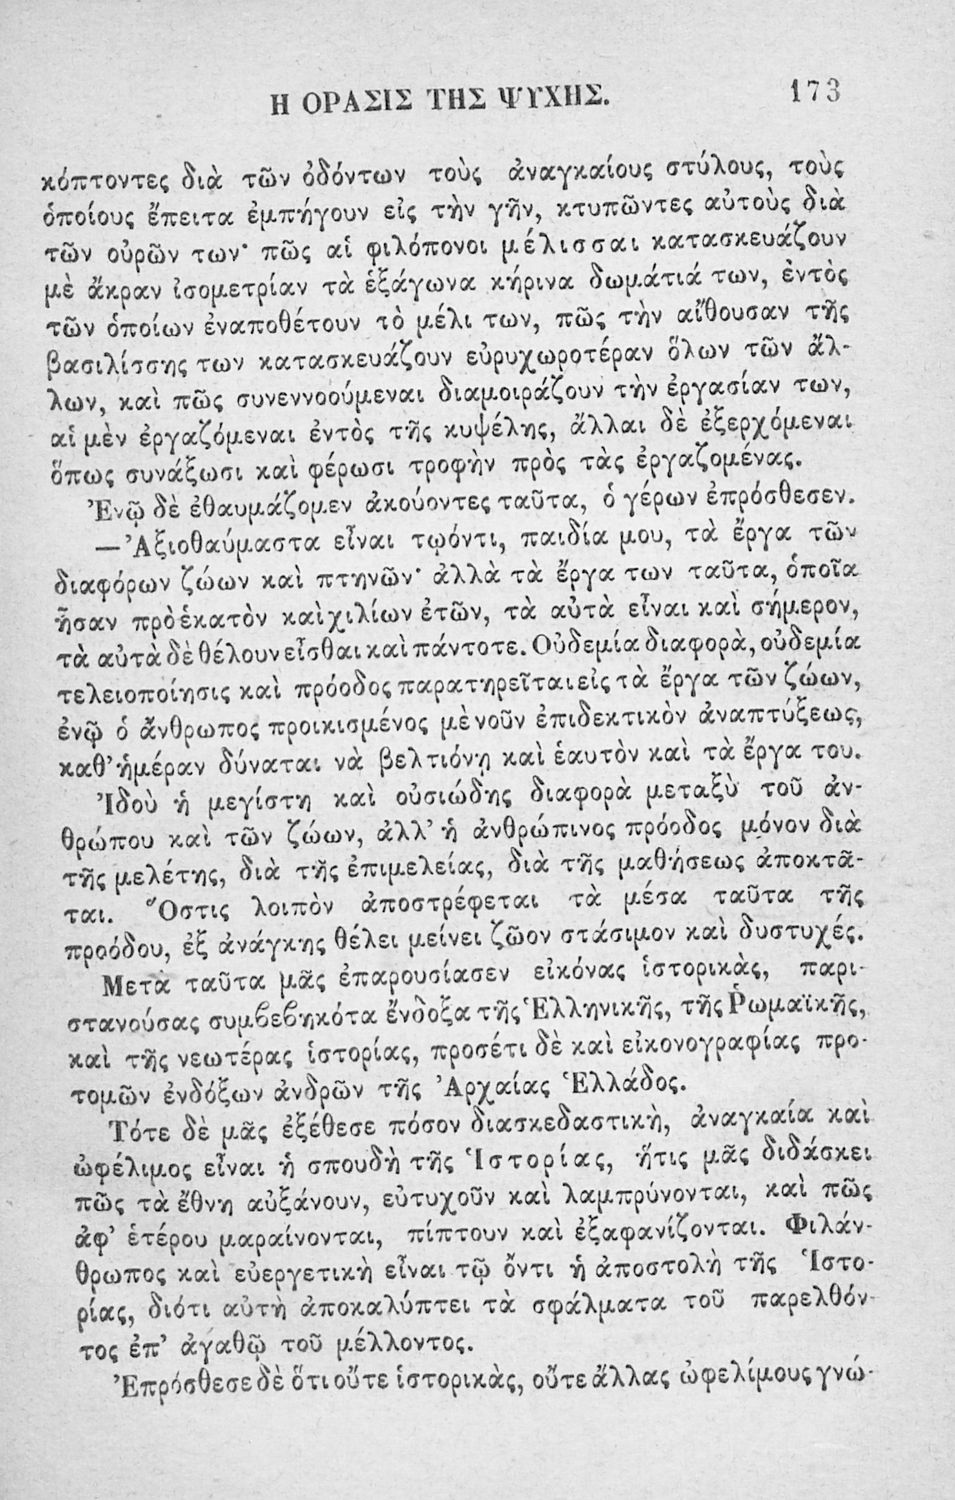 Η ΟΡΑΣΙΣ ΤΗΣ ΨΥΧΗΣ. 173
κόπτοντες διὰ τῶν ὀδόντων τοὺς ἀναγκαίους στύλους, τοὺς
ὁποίους ἔπειτα ἐμπήγουν εἰς τὴν γῆν, κτυπῶντες αὐτοὺς διὰ
τῶν οὐρῶν των· πῶς αἱ φιλόπονοι μέλισσαι κατασκευάζουν
μὲ ἄκραν ἰσομετρίαν τὰ ἑξάγωνα κήρινα δωμάτιά των, ἐντὸς
τῶν ὁποίων ἐναποθέτουν τὸ μέλι των, πῶς τὴν αἴθουσαν τῆς
βασιλίσσης των κατασκευάζουν εὐρυχωροτέραν ὅλων τῶν ἄλ-
λων, καὶ πῶς συνεννοούμεναι διαμοιράζουν τὴν ἐργασίαν των,
αἱ μὲν ἐργαζόμεναι ἐντὸς τῆς κυψέλης, ἄλλαι δὲ ἐξερχόμεναι
ὅπως συνάξωσι καὶ φέρωσι τροφὴν πρὸς τὰς ἐργαζομένας.
Ἐνῷ δὲ ἐθαυμάζομεν ἀκούοντες ταῦτα, ὁ γέρων ἐπρόσθεσεν.
—Ἀξιοθαύμαστα εἶναι τῳόντι, παιδία μου, τὰ ἔργα τῶν
διαφόρων ζώων καὶ πτηνῶν· ἀλλὰ τὰ ἔργα των ταῦτα, ὁποῖα
ἦσαν πρὸ ἑκατὸν καὶ χιλίων ἐτῶν, τὰ αὐτὰ εἶναι καὶ σήμερον,
τὰ αὐτὰ δὲ θέλουν εἶσθαι καὶ πάντοτε. Οὐδεμία διαφορὰ, οὐδεμία
τελειοποίησις καὶ πρόοδος παρατηρεῖται εἰς τὰ ἔργα τῶν ζώων,
ἐνῷ ὁ ἄνθρωπος προικισμένος μὲ νοῦν ἐπιδεκτικὸν ἀναπτύξεως,
καθ' ἡμέραν δύναται νὰ βελτιόνῃ καὶ ἑαυτὸν καὶ τὰ ἔργα του.
Ἰδοὺ ἡ μεγίστη καὶ οὐσιώδης διαφορὰ μεταξὺ τοῦ ἀν-
θρώπου καὶ τῶν ζώων, ἀλλ' ἡ ἀνθρώπινος πρόοδος μόνον διὰ
τῆς μελέτης, διὰ τῆς ἐπιμελείας, διὰ τῆς μαθήσεως ἀποκτᾶ-
ται. Ὅστις λοιπὸν ἀποστρέφεται τὰ μέσα ταῦτα τῆς
προόδου, ἐξ ἀνάγκης θέλει μείνει ζῶον στάσιμον καὶ δυστυχές.
Μετὰ ταῦτα μᾶς ἐπαρουσίασεν εἰκόνας ἱστορικὰς, παρι-
στανούσας συμβεβηκότα ἔνδοξα τῆς Ἑλληνικῆς, τῆς Ῥωμαϊκῆς,
καὶ τῆς νεωτέρας ἱστορίας, προσέτι δὲ καὶ εἰκονογραφίας προ-
τομῶν ἐνδόξων ἀνδρῶν τῆς Ἀρχαίας Ἑλλάδος.
Τότε δὲ μᾶς ἐξέθεσε πόσον διασκεδαστικὴ, ἀναγκαία καὶ
ὠφέλιμος εἶναι ἡ σπουδὴ τῆς Ἱστορίας, ἥτις μᾶς διδάσκει
πῶς τὰ ἔθνη αὐξάνουν, εὐτυχοῦν καὶ λαμπρύνονται, καὶ πῶς
ἀφ' ἑτέρου μαραίνονται, πίπτουν καὶ ἐξαφανίζονται. Φιλάν-
θρωπος καὶ εὐεργετικὴ εἶναι τῷ ὄντι ἡ ἀποστολὴ τῆς Ἱστο-
ρίας, διότι αὐτὴ ἀποκαλύπτει τὰ σφάλματα τοῦ παρελθόν-
τος ἐπ' ἀγαθῷ τοῦ μέλλοντος.
Ἐπρόσθεσε δὲ ὅτι οὔτε ἱστορικὰς, οὔτε ἄλλας ὠφελίμους γνώ-